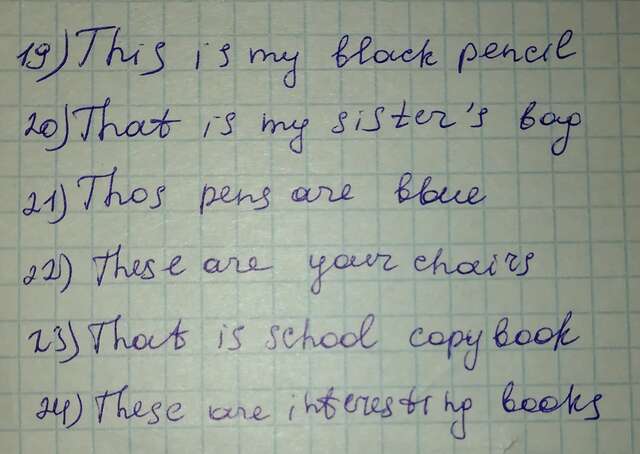 19) This is my black pencil
20) That is my sister's bag
21) Thos pens are blue
22) These are your chairs
23) That is school copybook
24) These are interesting books